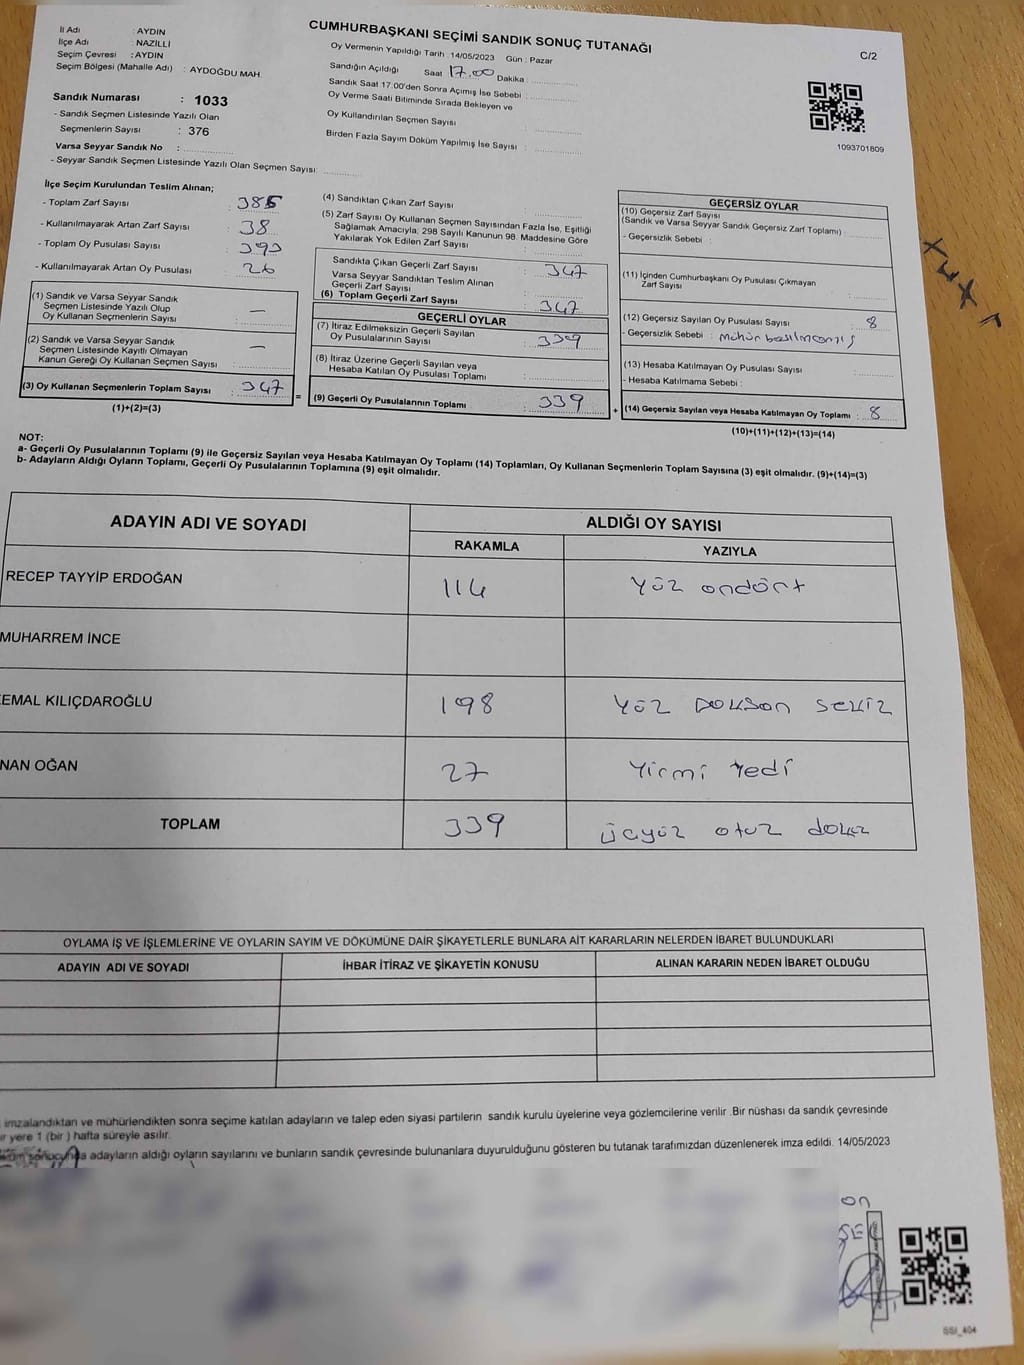 CUMHURBAŞKANI SEÇİMİ SANDIK SONUÇ TUTANAĞI
C/2
İl Adı : AYDIN
İlçe Adı : NAZİLLİ
Seçim Çevresi : AYDIN
Seçim Bölgesi (Mahalle Adı) : AYDOĞDU MAH.
Oy Vermenin Yapıldığı Tarih : 14/05/2023 Gün : Pazar
Sandığın Açıldığı Saat 17.00 Dakika :
Sandık Saat 17.00'den Sonra Açımış İse Sebebi :
Oy Verme Saati Bitiminde Sırada Bekleyen ve
Oy Kullandırılan Seçmen Sayısı :
Birden Fazla Sayım Döküm Yapılmış İse Sayısı :
1093701809
Sandık Numarası : 1033
- Sandık Seçmen Listesinde Yazılı Olan
Seçmenlerin Sayısı : 376
Varsa Seyyar Sandık No :
- Seyyar Sandık Seçmen Listesinde Yazılı Olan Seçmen Sayısı:
İlçe Seçim Kurulundan Teslim Alınan;
- Toplam Zarf Sayısı : 385
- Kullanılmayarak Artan Zarf Sayısı : 38
- Toplam Oy Pusulası Sayısı : 393
- Kullanılmayarak Artan Oy Pusulası : 26
(1) Sandık ve Varsa Seyyar Sandık
Seçmen Listesinde Yazılı Olup
Oy Kullanan Seçmenlerin Sayısı : —
(2) Sandık ve Varsa Seyyar Sandık
Seçmen Listesinde Kayıtlı Olmayan
Kanun Gereği Oy Kullanan Seçmen Sayısı : —
(3) Oy Kullanan Seçmenlerin Toplam Sayısı : 347
(1)+(2)=(3)
=
(4) Sandıktan Çıkan Zarf Sayısı :
(5) Zarf Sayısı Oy Kullanan Seçmen Sayısından Fazla İse, Eşitliği
Sağlamak Amacıyla; 298 Sayılı Kanunun 98. Maddesine Göre
Yakılarak Yok Edilen Zarf Sayısı :
Sandıkta Çıkan Geçerli Zarf Sayısı : 347
Varsa Seyyar Sandıktan Teslim Alınan
Geçerli Zarf Sayısı :
(6) Toplam Geçerli Zarf Sayısı : 347
GEÇERLİ OYLAR
(7) İtiraz Edilmeksizin Geçerli Sayılan
Oy Pusulalarının Sayısı : 339
(8) İtiraz Üzerine Geçerli Sayılan veya
Hesaba Katılan Oy Pusulası Toplamı :
(9) Geçerli Oy Pusulalarının Toplamı : 339
+
GEÇERSİZ OYLAR
(10) Geçersiz Zarf Sayısı
(Sandık ve Varsa Seyyar Sandık Geçersiz Zarf Toplamı) :
- Geçersizlik Sebebi :
(11) İçinden Cumhurbaşkanı Oy Pusulası Çıkmayan
Zarf Sayısı :
(12) Geçersiz Sayılan Oy Pusulası Sayısı : 8
- Geçersizlik Sebebi : mühür basılmamış
(13) Hesaba Katılmayan Oy Pusulası Sayısı :
- Hesaba Katılmama Sebebi :
(14) Geçersiz Sayılan veya Hesaba Katılmayan Oy Toplamı : 8
(10)+(11)+(12)+(13)=(14)
NOT:
a- Geçerli Oy Pusulalarının Toplamı (9) ile Geçersiz Sayılan veya Hesaba Katılmayan Oy Toplamı (14) Toplamları, Oy Kullanan Seçmenlerin Toplam Sayısına (3) eşit olmalıdır. (9)+(14)=(3)
b- Adayların Aldığı Oyların Toplamı, Geçerli Oy Pusulalarının Toplamına (9) eşit olmalıdır.
ADAYIN ADI VE SOYADI ALDIĞI OY SAYISI
RAKAMLA YAZIYLA
RECEP TAYYİP ERDOĞAN 114 Yüz ondört
MUHARREM İNCE
EMAL KILIÇDAROĞLU 198 Yüz Doksan Sekiz
NAN OĞAN 27 Yirmi Yedi
TOPLAM 339 üçyüz otuz dokuz
OYLAMA İŞ VE İŞLEMLERİNE VE OYLARIN SAYIM VE DÖKÜMÜNE DAİR ŞİKAYETLERLE BUNLARA AİT KARARLARIN NELERDEN İBARET BULUNDUKLARI
ADAYIN ADI VE SOYADI İHBAR İTİRAZ VE ŞİKAYETİN KONUSU ALINAN KARARIN NEDEN İBARET OLDUĞU
imzalandıktan ve mühürlendikten sonra seçime katılan adayların ve talep eden siyasi partilerin sandık kurulu üyelerine veya gözlemcilerine verilir .Bir nüshası da sandık çevresinde
ir yere 1 (bir ) hafta süreyle asılır.
sonucunda adayların aldığı oyların sayılarını ve bunların sandık çevresinde bulunanlara duyurulduğunu gösteren bu tutanak tarafımızdan düzenlenerek imza edildi. 14/05/2023
on
SE
SSI_404